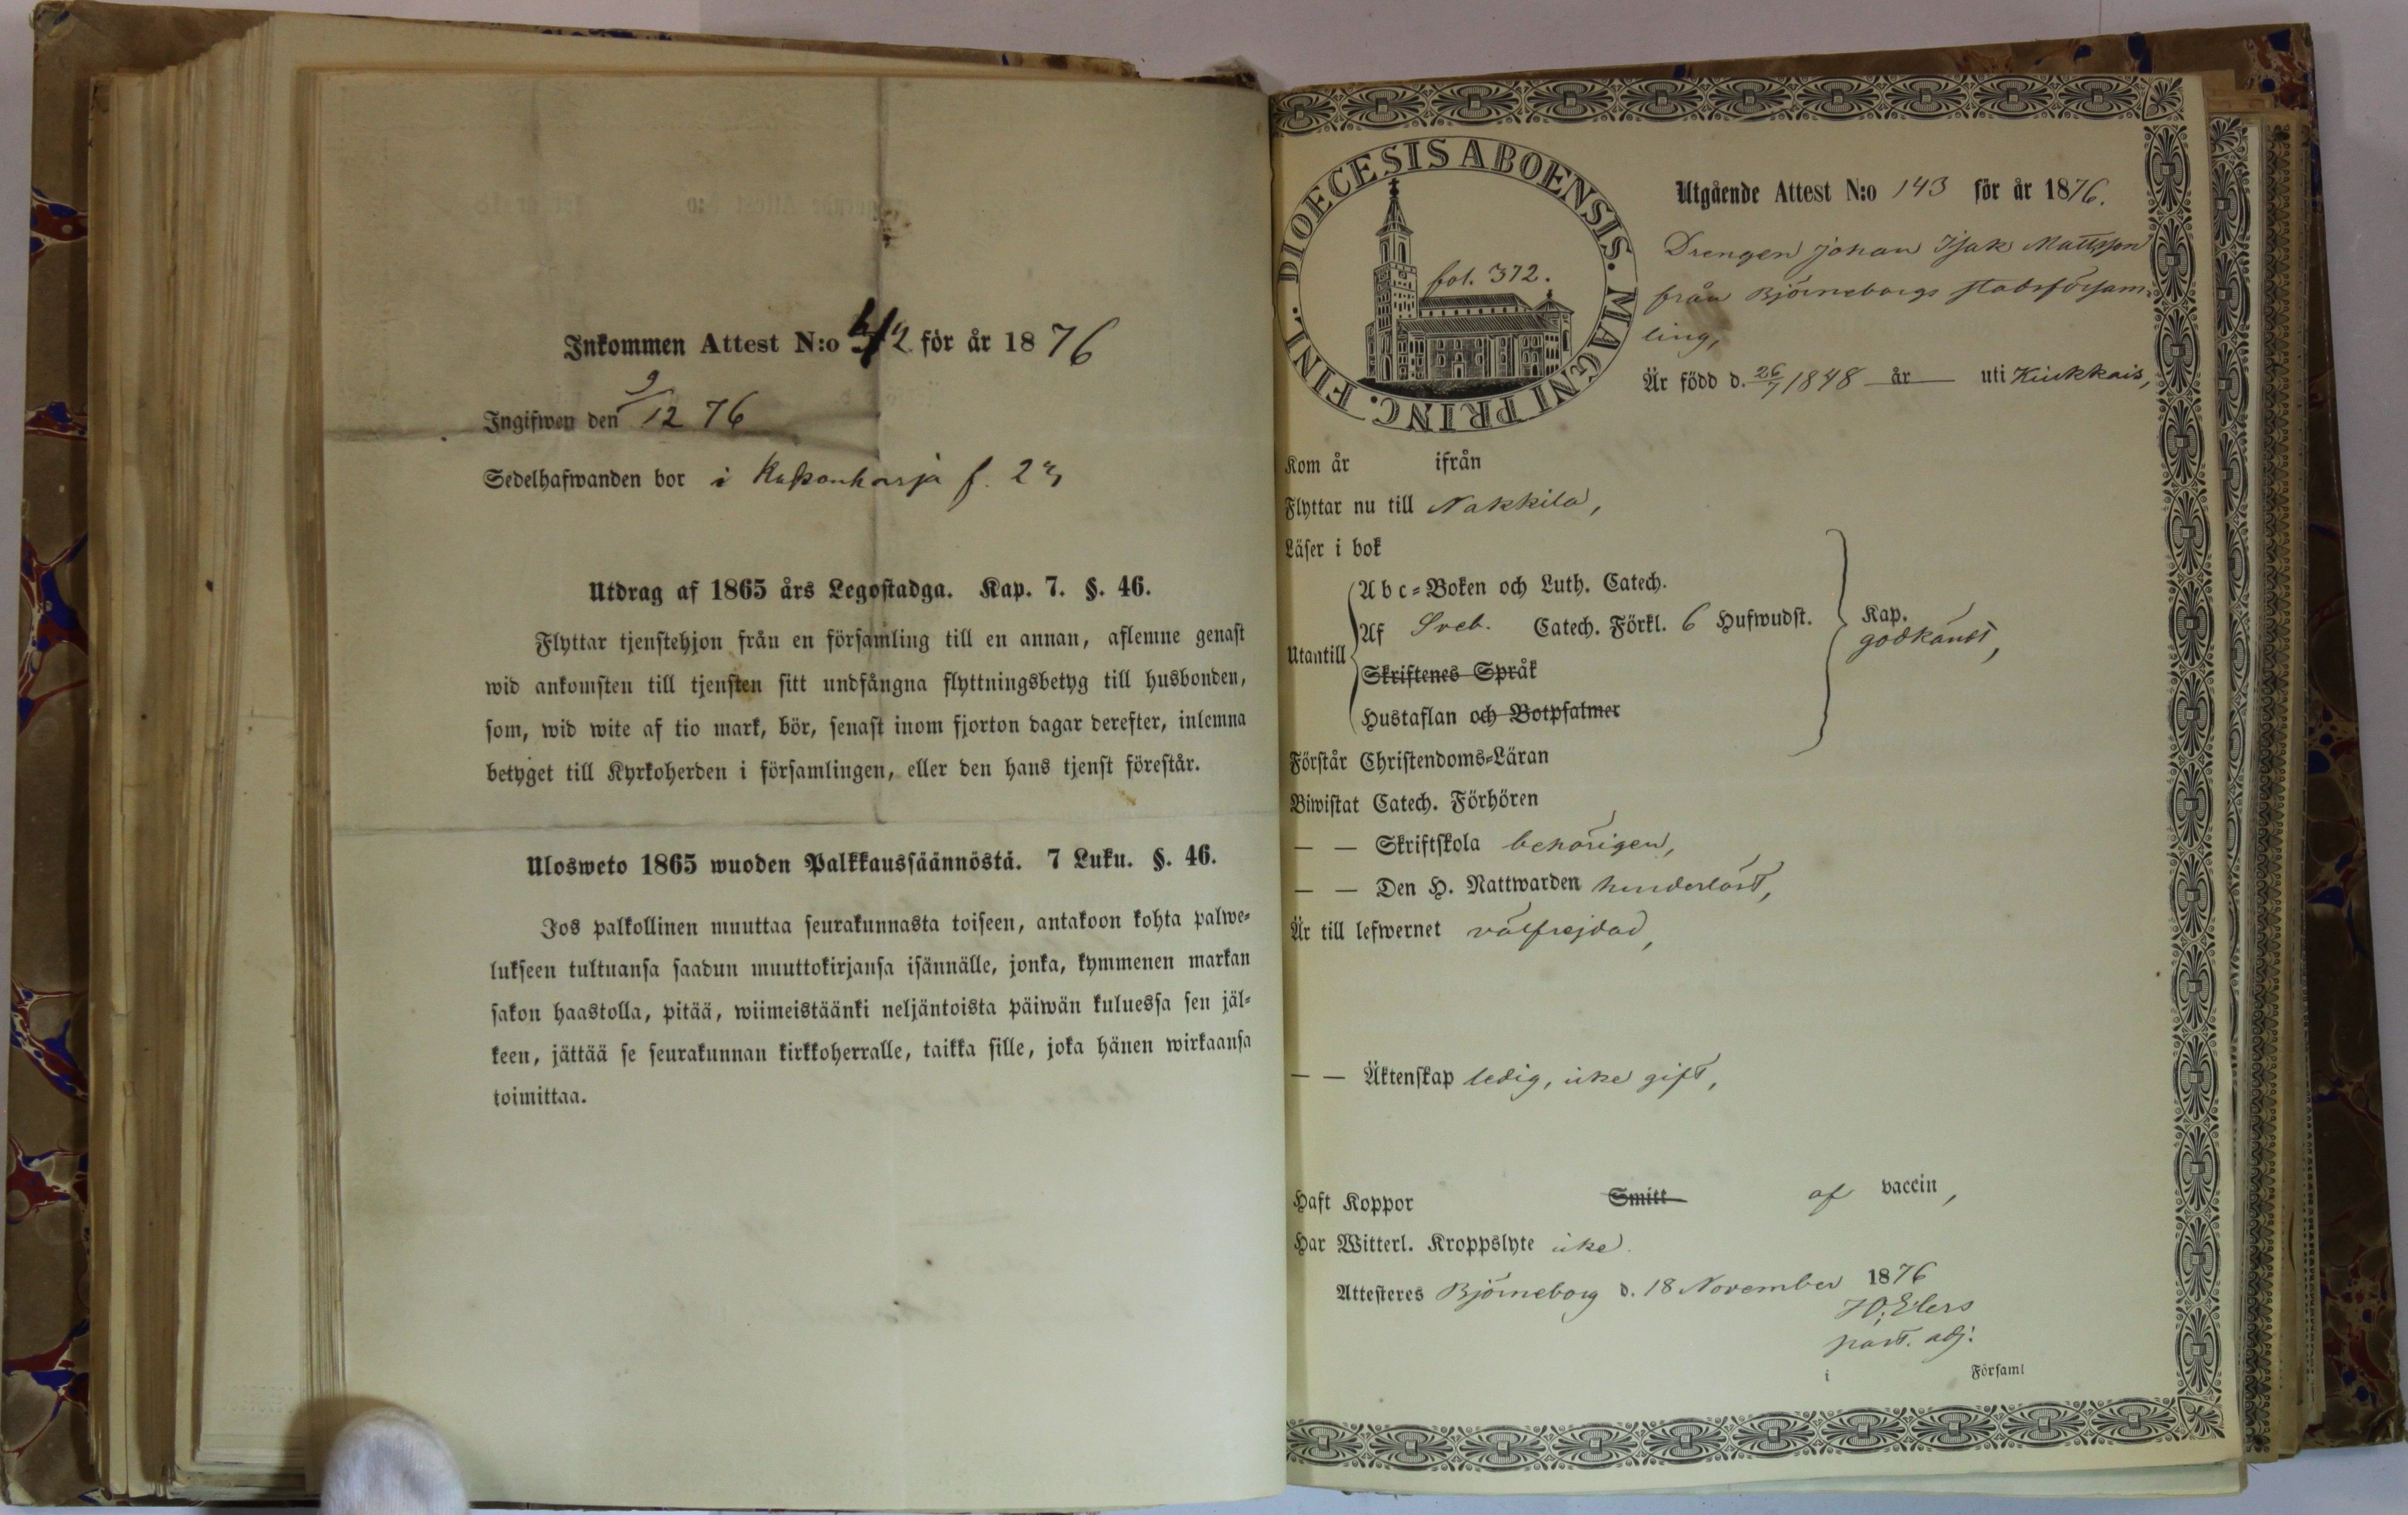 Inkommen Attest N:o 42 för år 1876
Ingifwen den 9/12 76
Sedelhafwanden bor i f. 23
Utdrag af 1865 års Legostadga. Kap. 7. §. 46.
Flyttar tjenstehjon från en församling till en annan, aflemne genast
wid ankomsten till tjensten sitt undfångna flyttningsbetyg till husbonden,
som, wid wite af tio mark, bör, senast inom fjorton dagar derefter, inlemna
betyget till Kyrkoherden i församlingen, eller den hans tjenst förestår.
Ulosweto 1865 wuoden Palkkaussäännöstä. 7 Luku. §. 46.
Jos palkollinen muuttaa seurakunnasta toiseen, antakoon kohta palwe-
lukseen tultuansa saadun muuttokirjansa isännälle, jonka, kymmenen markan
sakon haastolla, pitää, wiimeistäänki neljäntoista päiwän kuluessa sen jäl-
keen, jättää se seurakunnan kirkkoherralle, taikka sille, joka hänen wirkaansa
toimittaa.
DIOECESIS ABOENSIS. MAGNI PRINC. FINL.
fol. 372.
Utgående Attest N:o 143 för år 1876.
Drengen Johan Isak Mattsson
från Björneborgs stadsförsam-
ling,
Är född d. 26/7 1848 år uti Kiukkais,
Kom år ifrån
Flyttar nu till Nakkila,
Läser i bok
Abc-Boken och Luth. Catech.
Utantill Af Sveb. Catech. Förkl. 6 Hufwudst. Kap.
godkändt,
Skriftenes Språk
Hustaflan och Botpsalmer
Förstår Christendoms-Läran
Biwistat Catech. Förhören
— — Skriftskola behörigen,
— — Den H. Nattwarden hinderlöst,
Är till lefwernet välfrejdad,
— — Äktenskap ledig, icke gift,
Haft Koppor Smitt af vaccin,
Har Witterl. Kroppslyte icke.
Attesteres Björneborg d. 18 November 1876
Elers
past. adj:
i Församl